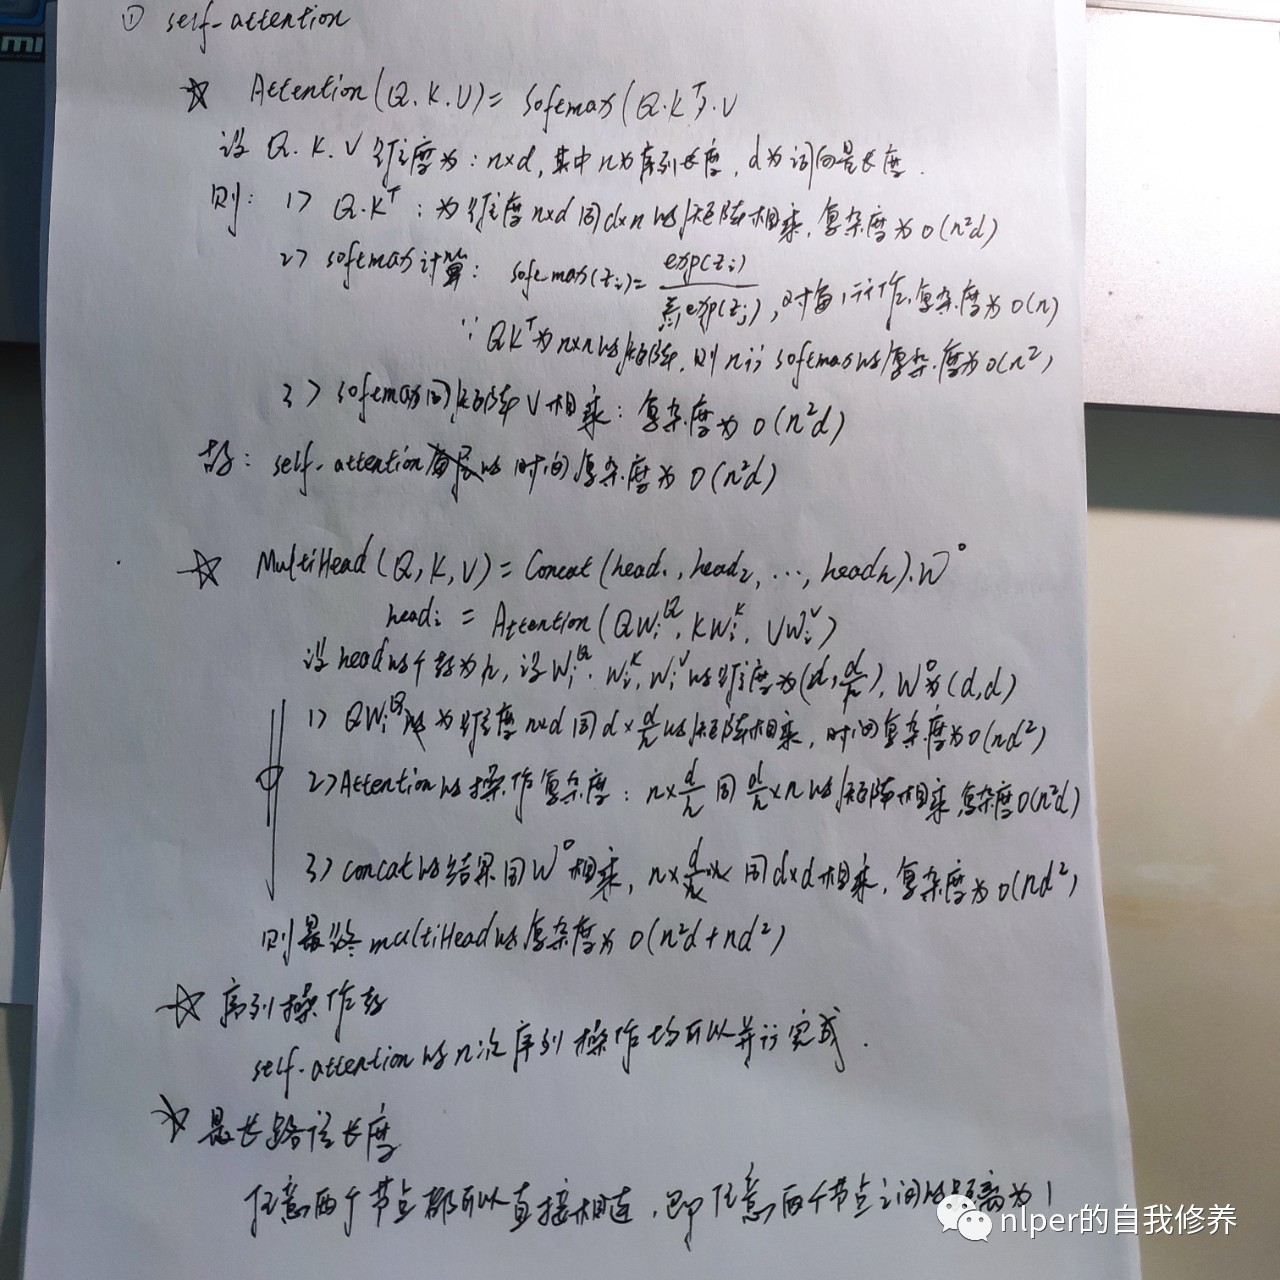 ① self-attention
☆ Attention(Q.K.V)=Softmax(Q.K^T).V
设 Q.K.V 维度为:n×d,其中n为序列长度,d为词向量长度.
则:1> Q.K^T:为维度n×d同d×n的矩阵相乘,复杂度为O(n²d)
2> softmax计算:softmax(z_i)=exp(z_i)/Σ_j exp(z_j),对每1行计作,复杂度为O(n)
∵QK^T为n×n的矩阵,则n行softmax的复杂度为O(n²)
3> softmax同矩阵V相乘:复杂度为O(n²d)
故:self-attention的时间复杂度为O(n²d)
☆ MultiHead(Q,K,V)=Concat(head₁,head₂,...,head_h).W^O
head_i = Attention(QW_i^Q,KW_i^K,VW_i^V)
设head的个数为h,设W_i^Q.W_i^K,W_i^V的维度为(d,d/h),W^O为(d,d)
1> QW_i^Q为维度n×d同d×d/h的矩阵相乘,时间复杂度为O(nd²)
2>Attention的操作复杂度:n×d/h同d/h×n的矩阵相乘,复杂度O(n²d)
3> concat的结果同W^O相乘,n×d同d×d相乘,复杂度为O(nd²)
则最终multiHead的复杂度为O(n²d+nd²)
☆ 序列操作数
self-attention的n次序列操作均可以并行完成.
☆ 最长路径长度
任意两个节点都可以直接相连,即任意两个节点之间的距离为1
nlper的自我修养
mi